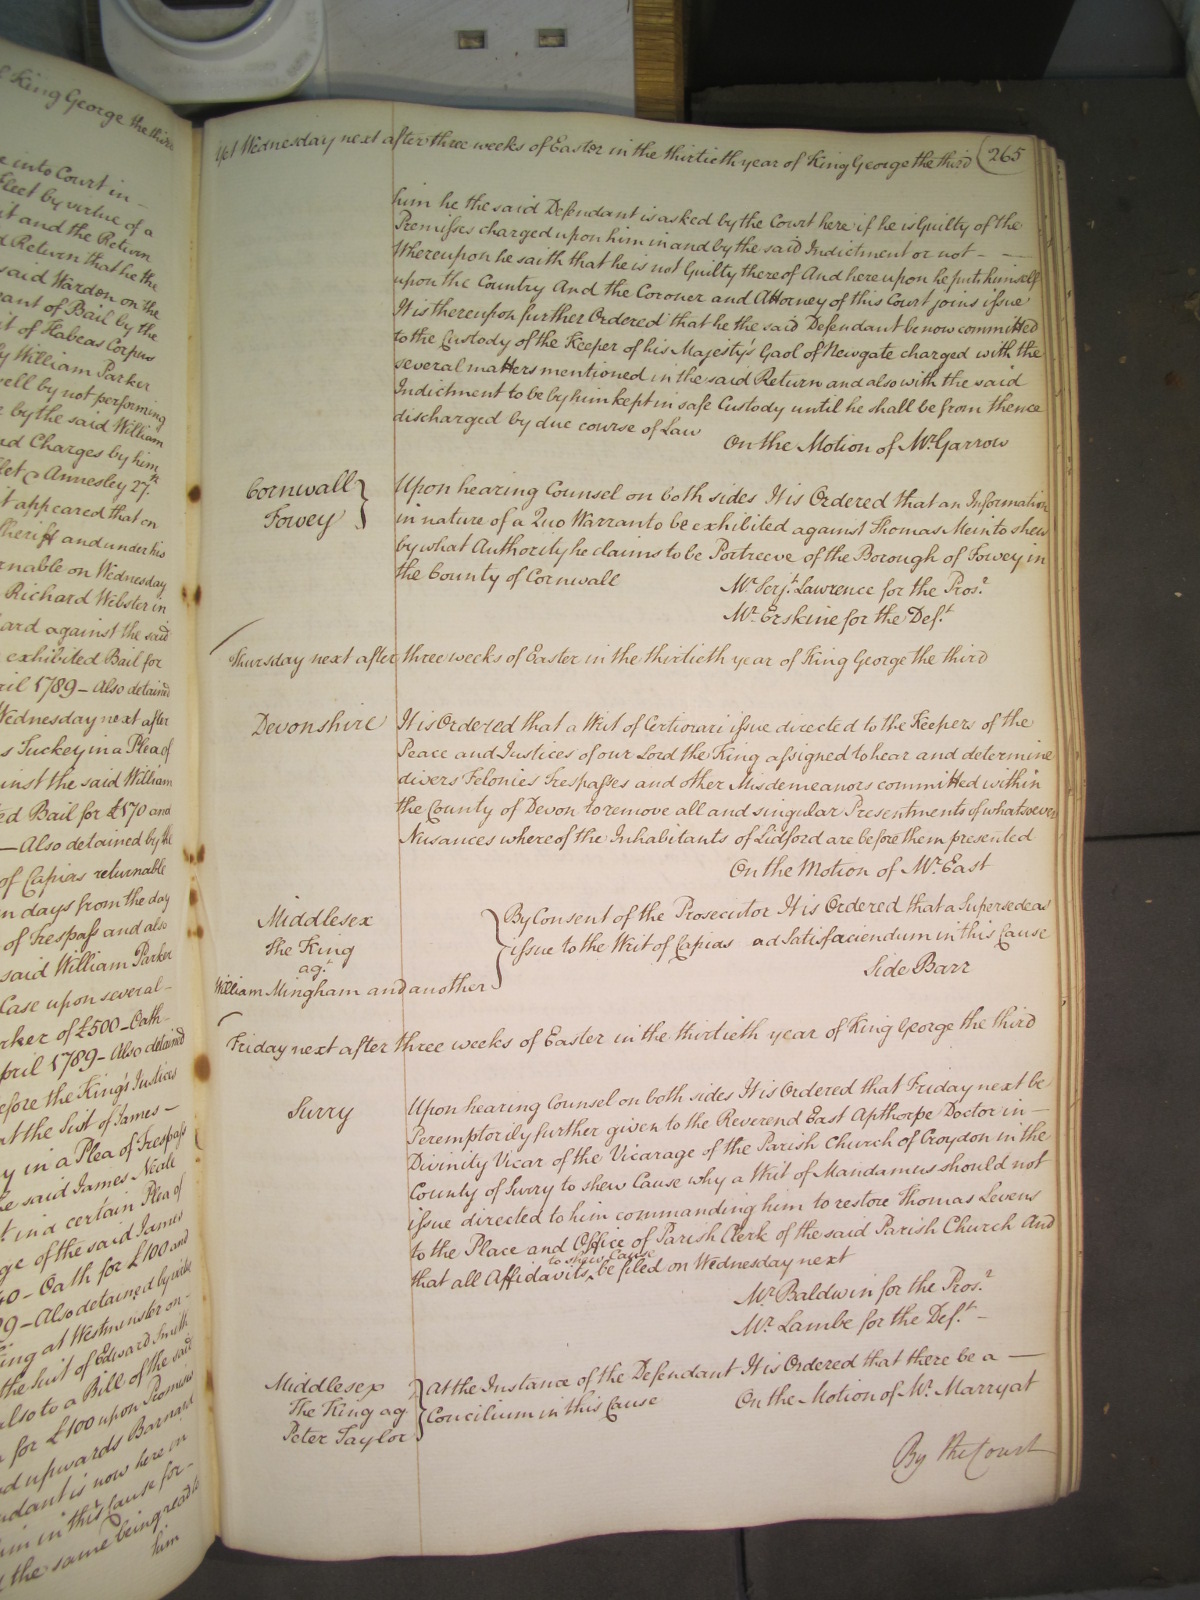 of King George the third
e into Court in –
Elect by virtue of a
it and the Return
d Return that he the
said Warden on the
eant of Bail by the
it of Habeas Corpus
y William Parker
well by not performing
e by the said William
nd Charges by him
let & Annesley 27th
t appeared that on
Sheriff and under his
rnable on Wednesday
Richard Webster in
ard against the said
exhibited Bail for
ril 1789 – Also detained
Wednesday next after
s Tuckey in a Plea of
inst the said William
ed Bail for £170 and
– Also detained by the
of Capias returnable
n days from the day
of Trespass and also
said William Parker
Case upon several –
rker of £500 – Oath
pril 1789 – Also detained
efore the King's Justices
at the Suit of James –
y in a Plea of Trespass
e said James Neale
t in a certain Plea of
ge of the said James
40 – Oath for £100 and
9 – Also detained by virtue
ing at Westminster on –
the suit of Edward Smith
also to a Bill of the said
for £100 upon Promises
d upwards Barnard
ndant is now here in
im in this Cause for –
the same being read to
him
Yet Wednesday next after three weeks of Easter in the thirtieth year of King George the third 265
him he the said Defendant is asked by the Court here if he is Guilty of the
Premisses charged upon him in and by the said Indictment or not – –
Whereupon he saith that he is not Guilty thereof And hereupon he puts himself
upon the Country And the Coroner and Attorney of this Court joins issue
It is thereupon further Ordered that he the said Defendant be now committed
to the Custody of the Keeper of his Majesty's Gaol of Newgate charged with the
several matters mentioned in the said Return and also with the said
Indictment to be by him kept in safe Custody until he shall be from thence
discharged by due course of Law
On the Motion of Mr. Garrow
Cornwall
Fowey
Upon hearing Counsel on both sides It is Ordered that an Information
in nature of a Quo Warranto be exhibited against Thomas Mein to shew
by what Authority he claims to be Portreeve of the Borough of Fowey in
the County of Cornwall
Mr. Serjt. Lawrence for the Pros.r
Mr. Erskine for the Deft.
Thursday next after three weeks of Easter in the thirtieth year of King George the third
Devonshire
It is Ordered that a Writ of Certiorari issue directed to the Keepers of the
Peace and Justices of our Lord the King assigned to hear and determine
divers Felonies Trespasses and other Misdemeanors committed within
the County of Devon to remove all and singular Presentments of whatsoever
Nusances whereof the Inhabitants of Lidford are before them presented
On the Motion of Mr. East
Middlesex
The King
agt.
William Mingham and another
By Consent of the Prosecutor It is Ordered that a Supersedeas
issue to the Writ of Capias ad Satisfaciendum in this Cause
Side Barr
Friday next after three weeks of Easter in the thirtieth year of King George the third
Surry
Upon hearing Counsel on both sides It is Ordered that Friday next be
Peremptorily further given to the Reverend East Apthorpe Doctor in –
Divinity Vicar of the Vicarage of the Parish Church of Croydon in the
County of Surry to shew Cause why a Writ of Mandamus should not
issue directed to him commanding him to restore Thomas Levens
to the Place and Office of Parish Clerk of the said Parish Church And
to shew Cause
that all Affidavits ‸ be filed on Wednesday next
Mr. Baldwin for the Pros.r
Mr. Lambe for the Deft. –
Middlesex
The King ag
Peter Taylor
At the Instance of the Defendant It is Ordered that there be a –
Concilium in this Cause On the Motion of Mr. Marryat
By the Court